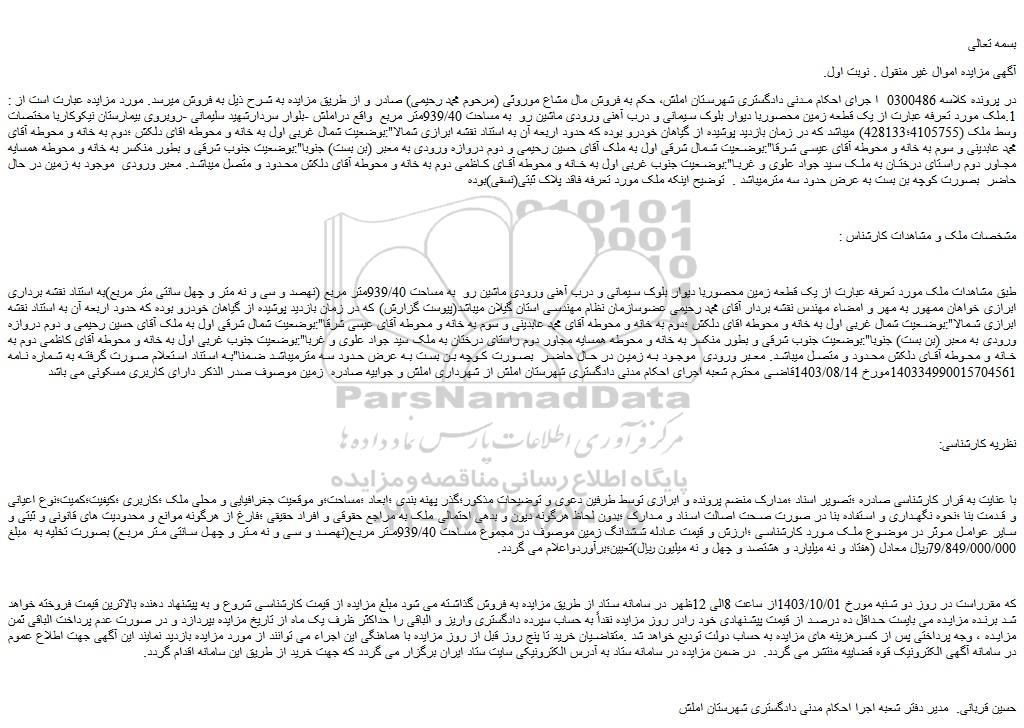 بسمه تعالی
آگهی مزایده اموال غیر منقول . نوبت اول.
در پرونده کلاسه 0300486 ا جرای احکام مدنی دادگستری شهرستان املش، حکم به فروش مال مشاع موروثی (مرحوم محمد رحیمی) صادر و از طریق مزایده به شرح ذیل به فروش میرسد. مورد مزایده عبارت است از :
1.ملک مورد تعرفه عبارت از یک قطعه زمین محصوربا دیوار بلوک سیمانی و درب آهنی ورودی ماشین رو به مساحت 939/40متر مربع واقع دراملش -بلوار سردارشهید سلیمانی -روبروی بیمارستان نیکوکاربا مختصات
وسط ملک (4105755؛428133) میباشد که در زمان بازدید پوشیده از گیاهان خودرو بوده که حدود اربعه آن به استناد نقشه ابرازی شمالا":بوضعیت شمال غربی اول به خانه و محوطه اقای دلکش ؛دوم به خانه و محوطه آقای
محمد عابدینی و سوم به خانه و محوطه آقای عیسی شرقا":بوضعیت شمال شرقی اول به ملک آقای حسین رحیمی و دوم دروازه ورودی به معبر (بن بست) جنوبا":بوضعیت جنوب شرقی و بطور منکسر به خانه و محوطه همسایه
مجاور دوم راستای درختان به ملک سید جواد علوی و غربا":بوضعیت جنوب غربی اول به خانه و محوطه آقای کاظمی دوم به خانه و محوطه آقای دلکش محدود و متصل میباشد. معبر ورودی موجود به زمین در حال
حاضر بصورت کوچه بن بست به عرض حدود سه مترمیباشد . توضیح اینکه ملک مورد تعرفه فاقد پلاک ثبتی(نسقی)بوده
مشخصات ملک و مشاهدات کارشناس :
طبق مشاهدات ملک مورد تعرفه عبارت از یک قطعه زمین محصوربا دیوار بلوک سیمانی و درب آهنی ورودی ماشین رو به مساحت 939/40متر مربع (نهصد و سی و نه متر و چهل سانتی متر مربع)به استناد نقشه برداری
ابرازی خواهان ممهور به مهر و امضاء مهندس نقشه بردار آقای محمد رحیمی عضوسازمان نظام مهندسی استان گیلان میباشد(پیوست گزارش) که در زمان بازدید پوشیده از گیاهان خودرو بوده که حدود اربعه آن به استناد نقشه
ابرازی شمالا":بوضعیت شمال غربی اول به خانه و محوطه اقای دلکش ؛دوم به خانه و محوطه آقای محمد عابدینی و سوم به خانه و محوطه آقای عیسی شرقا":بوضعیت شمال شرقی اول به ملک آقای حسین رحیمی و دوم دروازه
ورودی به معبر (بن بست) جنوبا":بوضعیت جنوب شرقی و بطور منکسر به خانه و محوطه همسایه مجاور دوم راستای درختان به ملک سید جواد علوی و غربا":بوضعیت جنوب غربی اول به خانه و محوطه آقای کاظمی دوم به
خانه و محوطه آقای دلکش محدود و متصل میباشد. معبر ورودی موجود به زمین در حال حاضر بصورت کوچه بن بست به عرض حدود سه مترمیباشد ضمنا"به استناد استعلام صورت گرفته به شماره نامه
140334990015704561مورخ 1403/08/14قاضی محترم شعبه اجرای احکام مدنی دادگستری شهرستان املش از شهرداری املش و جوابیه صادره زمین موصوف صدر الذکر دارای کاربری مسکونی می باشد
ParsNamadData
مرکز فرآوری اطلاعات پارس نماد داده ها
نظریه کارشناسی:
پایگاه اطلاع رسانی مناقصه و مزایده
با عنایت به قرار کارشناسی صادره ؛تصویر اسناد ؛مدارک منضم پرونده و ابرازی توسط طرفین دعوی و توضیحات مذکور؛گذر پهنه بندی ؛ابعاد ؛مساحت؛و موقعیت جغرافیایی و محلی ملک ؛کاربری ؛کیفیت؛کمیت؛نوع اعیانی
و قدمت بنا ؛نحوه نگهداری و استفاده بنا در صورت صحت اصالت اسناد و مدارک ؛بدون لحاظ هرگونه دیون و بدهی احتمالی ملک به مراجع حقوقی و افراد حقیقی ؛فارغ از هرگونه موانع و محدودیت های قانونی و ثبتی و
سایر عوامل موثر در موضوع ملک مورد کارشناسی ؛ارزش و قیمت عادله ششدانگ زمین موصوف در مجموع مساحت 939/40متر مربع(نهصد و سی و نه متر و چهل سانتی متر مربع) بصورت تخلیه به مبلغ
79/849/000/000ریال معادل (هفتاد و نه میلیارد و هشتصد و چهل و نه میلیون ریال)تعیین؛برآوردواعلام می گردد.
که مقرراست در روز دو شنبه مورخ 1403/10/01از ساعت 8الی 12ظهر در سامانه ستاد از طریق مزایده به فروش گذاشته می شود مبلغ مزایده از قیمت کارشناسی شروع و به پیشنهاد دهنده بالاترین قیمت فروخته خواهد
شد برنده مزایده می بایست حداقل ده درصد از قیمت پیشنهادی خود رادر روز مزایده نقداً به حساب سپرده دادگستری واریز و الباقی را حداکثر ظرف یک ماه از تاریخ مزایده بپردازد و در صورت عدم پرداخت الباقی ثمن
مزایده ، وجه پرداختی پس از کسرهزینه های مزایده به حساب دولت تودیع خواهد شد .متقاضیان خرید تا پنج روز قبل از روز مزایده با هماهنگی این اجراء می توانند از مورد مزایده بازدید نمایند این آگهی جهت اطلاع عموم
در سامانه آگهی الکترونیک قوه قضاییه منتشر می گردد. در ضمن مزایده در سامانه ستاد به آدرس الکترونیکی سایت ستاد ایران برگزار می گردد که جهت خرید از طریق این سامانه اقدام گردد.
حسین قربانی. مدیر دفتر شعبه اجرا احکام مدنی دادگستری شهرستان املش